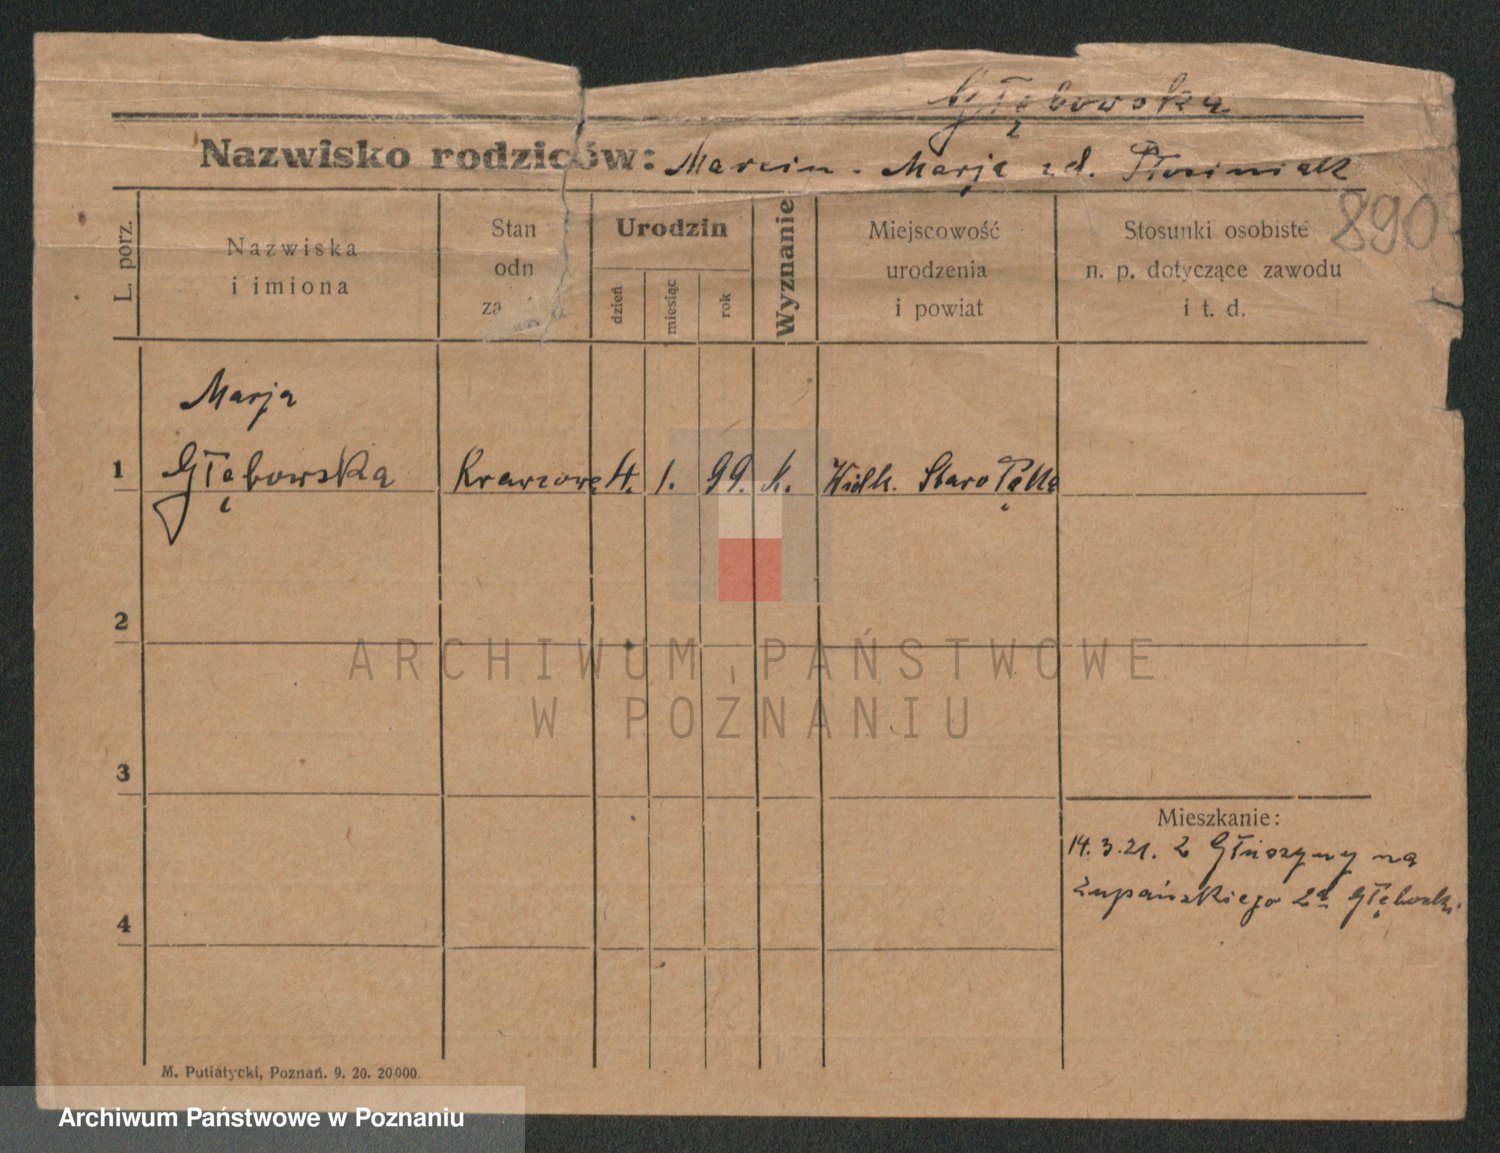 Głębowska
Nazwisko rodziców: Marcin - Marja zd.
890
L. porz.
Nazwiska
i imiona
Stan
odn
za
Urodzin
dzień
miesiąc
rok
Wyznanie
Miejscowość
urodzenia
i powiat
Stosunki osobiste
n. p. dotyczące zawodu
i t. d.
Marja
1 Głębowska Krawcowa 4. 1. 99. k. Wielk. Staro Łęka
2
3
4
Mieszkanie:
14.3.21. z Głuszyny na
Żupańskiego 2a Głębocki
M. Putiatycki, Poznań. 9. 20. 20000.
ARCHIWUM PAŃSTWOWE
W POZNANIU
Archiwum Państwowe w Poznaniu